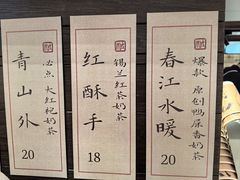 青山外
必点 大红袍奶茶
20
红酥手
锡兰红茶奶茶
18
春江水暖
爆款 原创鸭屎香奶茶
20